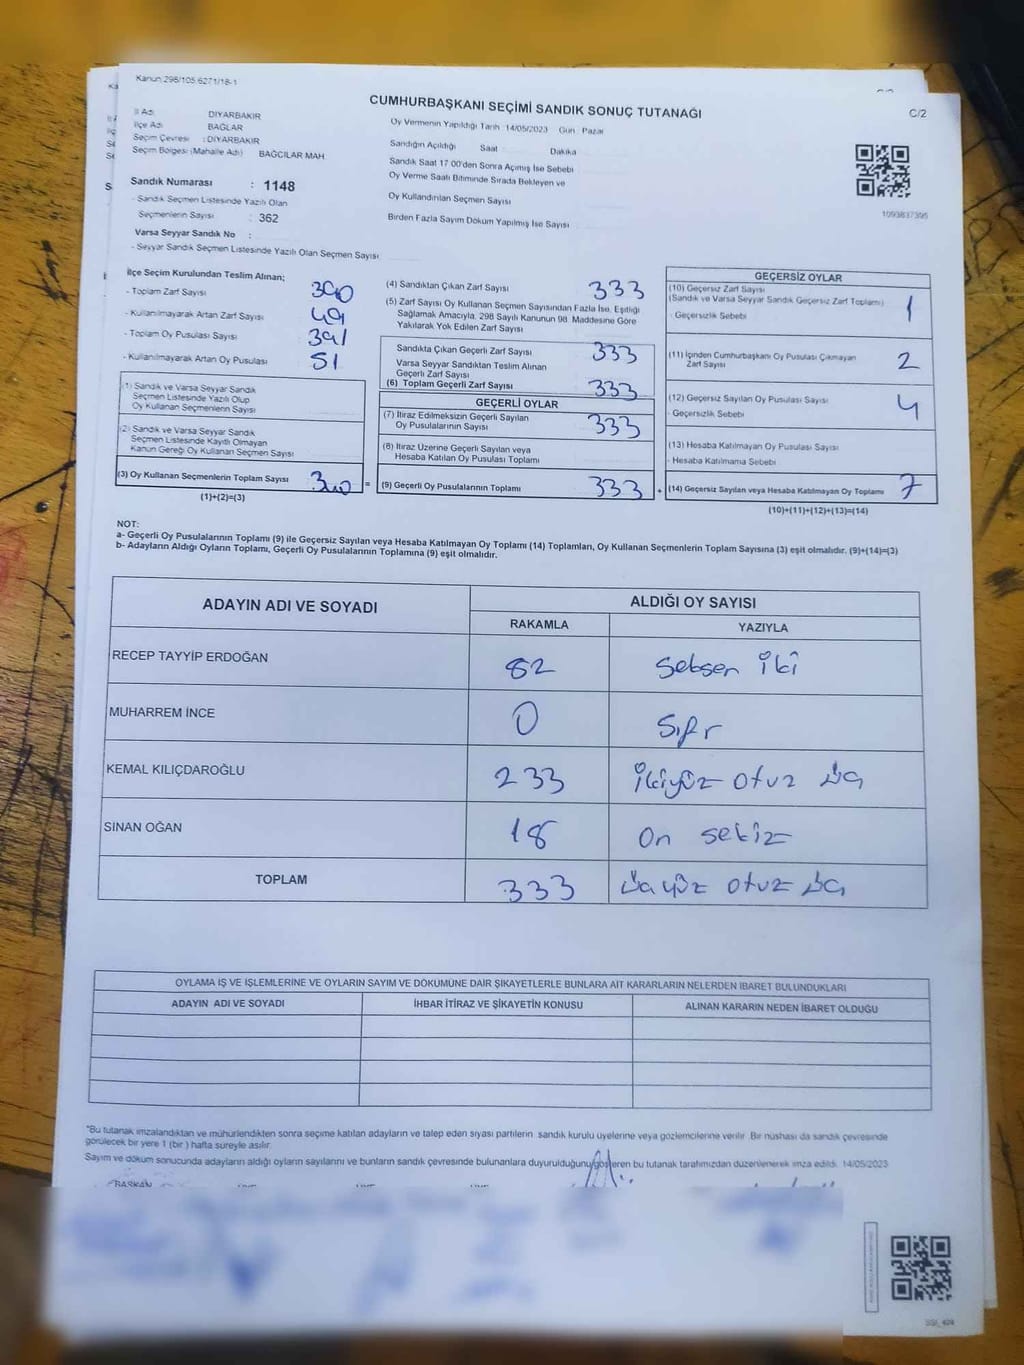 Kanun 298/105 6271/18-1
CUMHURBAŞKANI SEÇİMİ SANDIK SONUÇ TUTANAĞI
C/2
İl Adı DİYARBAKIR
İlçe Adı BAĞLAR
Seçim Çevresi : DİYARBAKIR
Seçim Bölgesi (Mahalle Adı) BAĞCILAR MAH
Oy Vermenin Yapıldığı Tarih 14/05/2023 Gün Pazar
Sandığın Açıldığı Saat Dakika
Sandık Saat 17 00'den Sonra Açılmış İse Sebebi
Oy Verme Saati Bitiminde Sırada Bekleyen ve
Oy Kullandırılan Seçmen Sayısı
Birden Fazla Sayım Döküm Yapılmış İse Sayısı
1093837395
Sandık Numarası : 1148
- Sandık Seçmen Listesinde Yazılı Olan
Seçmenlerin Sayısı : 362
Varsa Seyyar Sandık No :
- Seyyar Sandık Seçmen Listesinde Yazılı Olan Seçmen Sayısı
İlçe Seçim Kurulundan Teslim Alınan;
- Toplam Zarf Sayısı 390
- Kullanılmayarak Artan Zarf Sayısı 49
- Toplam Oy Pusulası Sayısı 391
- Kullanılmayarak Artan Oy Pusulası 51
(1) Sandık ve Varsa Seyyar Sandık
Seçmen Listesinde Yazılı Olup
Oy Kullanan Seçmenlerin Sayısı
(2) Sandık ve Varsa Seyyar Sandık
Seçmen Listesinde Kayıtlı Olmayan
Kanun Gereği Oy Kullanan Seçmen Sayısı
(3) Oy Kullanan Seçmenlerin Toplam Sayısı 340 =
(1)+(2)=(3)
(4) Sandıktan Çıkan Zarf Sayısı 333
(5) Zarf Sayısı Oy Kullanan Seçmen Sayısından Fazla İse, Eşitliği
Sağlamak Amacıyla, 298 Sayılı Kanunun 98. Maddesine Göre
Yakılarak Yok Edilen Zarf Sayısı
Sandıkta Çıkan Geçerli Zarf Sayısı 333
Varsa Seyyar Sandıktan Teslim Alınan
Geçerli Zarf Sayısı
(6) Toplam Geçerli Zarf Sayısı 333
GEÇERLİ OYLAR
(7) İtiraz Edilmeksizin Geçerli Sayılan
Oy Pusulalarının Sayısı 333
(8) İtiraz Üzerine Geçerli Sayılan veya
Hesaba Katılan Oy Pusulası Toplamı
(9) Geçerli Oy Pusulalarının Toplamı 333 +
GEÇERSİZ OYLAR
(10) Geçersiz Zarf Sayısı
(Sandık ve Varsa Seyyar Sandık Geçersiz Zarf Toplamı) 1
- Geçersizlik Sebebi
(11) İçinden Cumhurbaşkanı Oy Pusulası Çıkmayan
Zarf Sayısı 2
(12) Geçersiz Sayılan Oy Pusulası Sayısı 4
- Geçersizlik Sebebi
(13) Hesaba Katılmayan Oy Pusulası Sayısı
- Hesaba Katılmama Sebebi
(14) Geçersiz Sayılan veya Hesaba Katılmayan Oy Toplamı 7
(10)+(11)+(12)+(13)=(14)
NOT:
a- Geçerli Oy Pusulalarının Toplamı (9) ile Geçersiz Sayılan veya Hesaba Katılmayan Oy Toplamı (14) Toplamları, Oy Kullanan Seçmenlerin Toplam Sayısına (3) eşit olmalıdır. (9)+(14)=(3)
b- Adayların Aldığı Oyların Toplamı, Geçerli Oy Pusulalarının Toplamına (9) eşit olmalıdır.
ADAYIN ADI VE SOYADI ALDIĞI OY SAYISI
RAKAMLA YAZIYLA
RECEP TAYYİP ERDOĞAN 82 Seksen iki
MUHARREM İNCE 0 Sıfır
KEMAL KILIÇDAROĞLU 233 ikiyüz otuz üç
SİNAN OĞAN 18 On sekiz
TOPLAM 333 üçyüz otuz üç
OYLAMA İŞ VE İŞLEMLERİNE VE OYLARIN SAYIM VE DÖKÜMÜNE DAİR ŞİKAYETLERLE BUNLARA AİT KARARLARIN NELERDEN İBARET BULUNDUKLARI
ADAYIN ADI VE SOYADI İHBAR İTİRAZ VE ŞİKAYETİN KONUSU ALINAN KARARIN NEDEN İBARET OLDUĞU
*Bu tutanak imzalandıktan ve mühürlendikten sonra seçime katılan adayların ve talep eden siyasi partilerin sandık kurulu üyelerine veya gözlemcilerine verilir. Bir nüshası da sandık çevresinde
görülecek bir yere 1 (bir) hafta süreyle asılır.
Sayım ve döküm sonucunda adayların aldığı oyların sayılarını ve bunların sandık çevresinde bulunanlara duyurulduğunu gösteren bu tutanak tarafımızdan düzenlenerek imza edildi. 14/05/2023
BAŞKAN